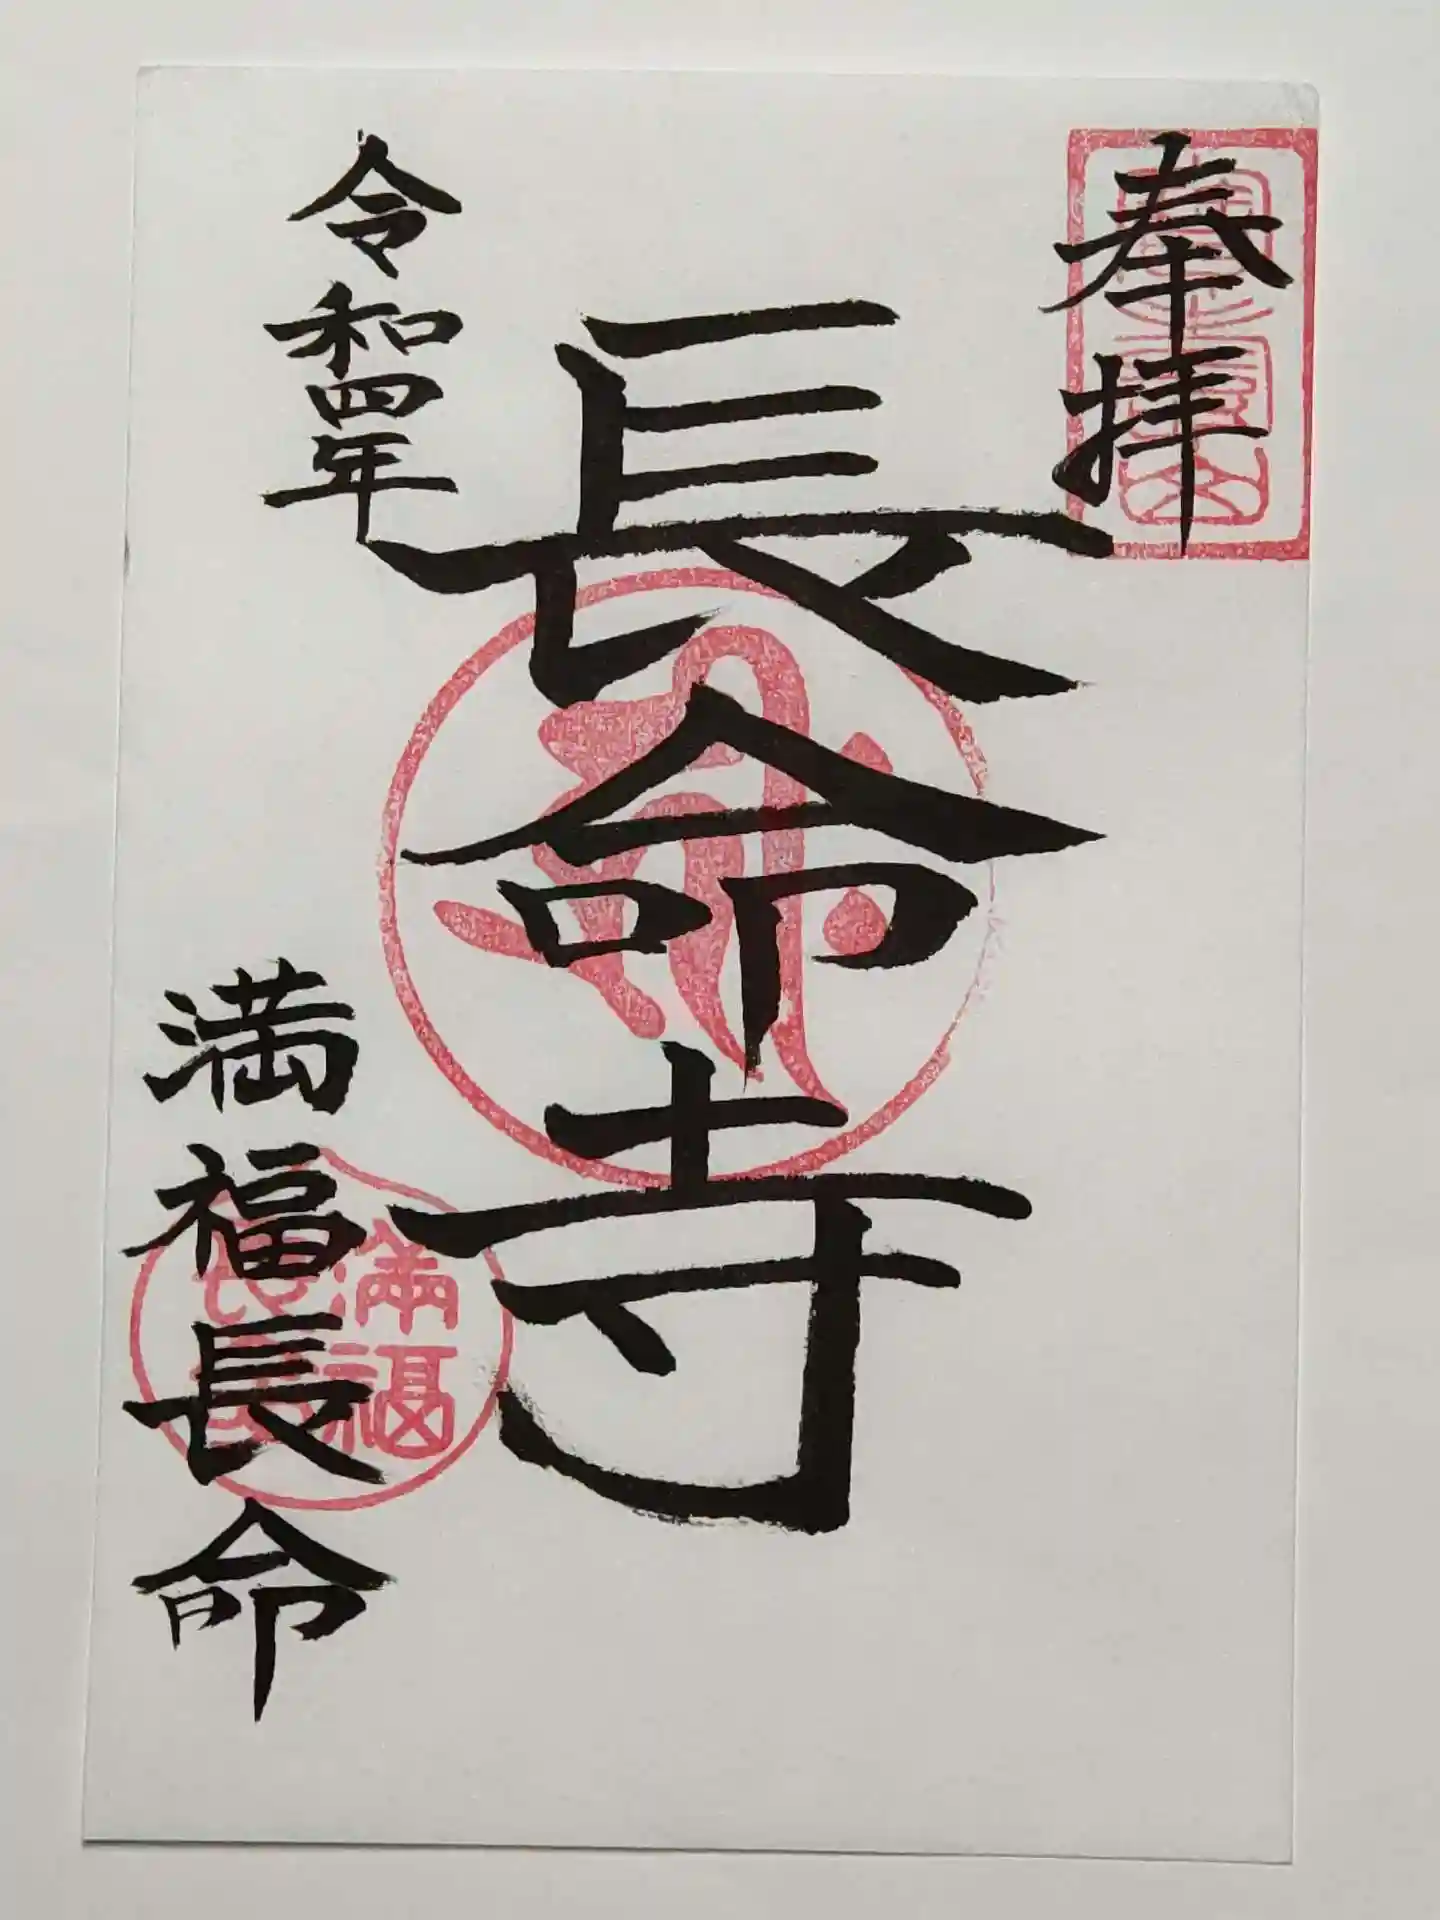 奉拝
長命寺
令和四年
満福長命
満福